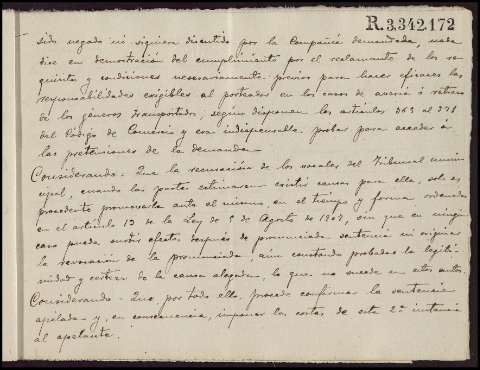 R.3.342.172
sido negado ni siquiera discutido por la Compañía demandada, nada
dice en demostración del cumplimiento por el reclamante de los re-
quisitos y condiciones necesariamente previos para hacer eficaces las
responsabilidades exigibles al porteador en los casos de avería ó retraso
de los géneros transportados, según disponen los artículos 363 al 371
del Código de Comercio y era indispensable probar para acceder á
las pretensiones de la demanda.
Considerando - Que la recusación de los vocales del Tribunal muni-
cipal, cuando las partes estimaren existir causas para ella, solo es
procedente promoverla ante el mismo, en el tiempo y forma ordenados
en el artículo 13 de la Ley de 5 de Agosto de 1907, sin que en ningún
caso pueda surtir efectos después de pronunciada sentencia ni originar
la revocación de la pronunciada, aun constando probadas la legiti-
midad y certeza de la causa alegada, lo que no sucede en estos autos.
Considerando - Que, por todo ello, procede confirmar la sentencia
apelada y, en consecuencia, imponer las costas de esta 2ª instancia
al apelante.